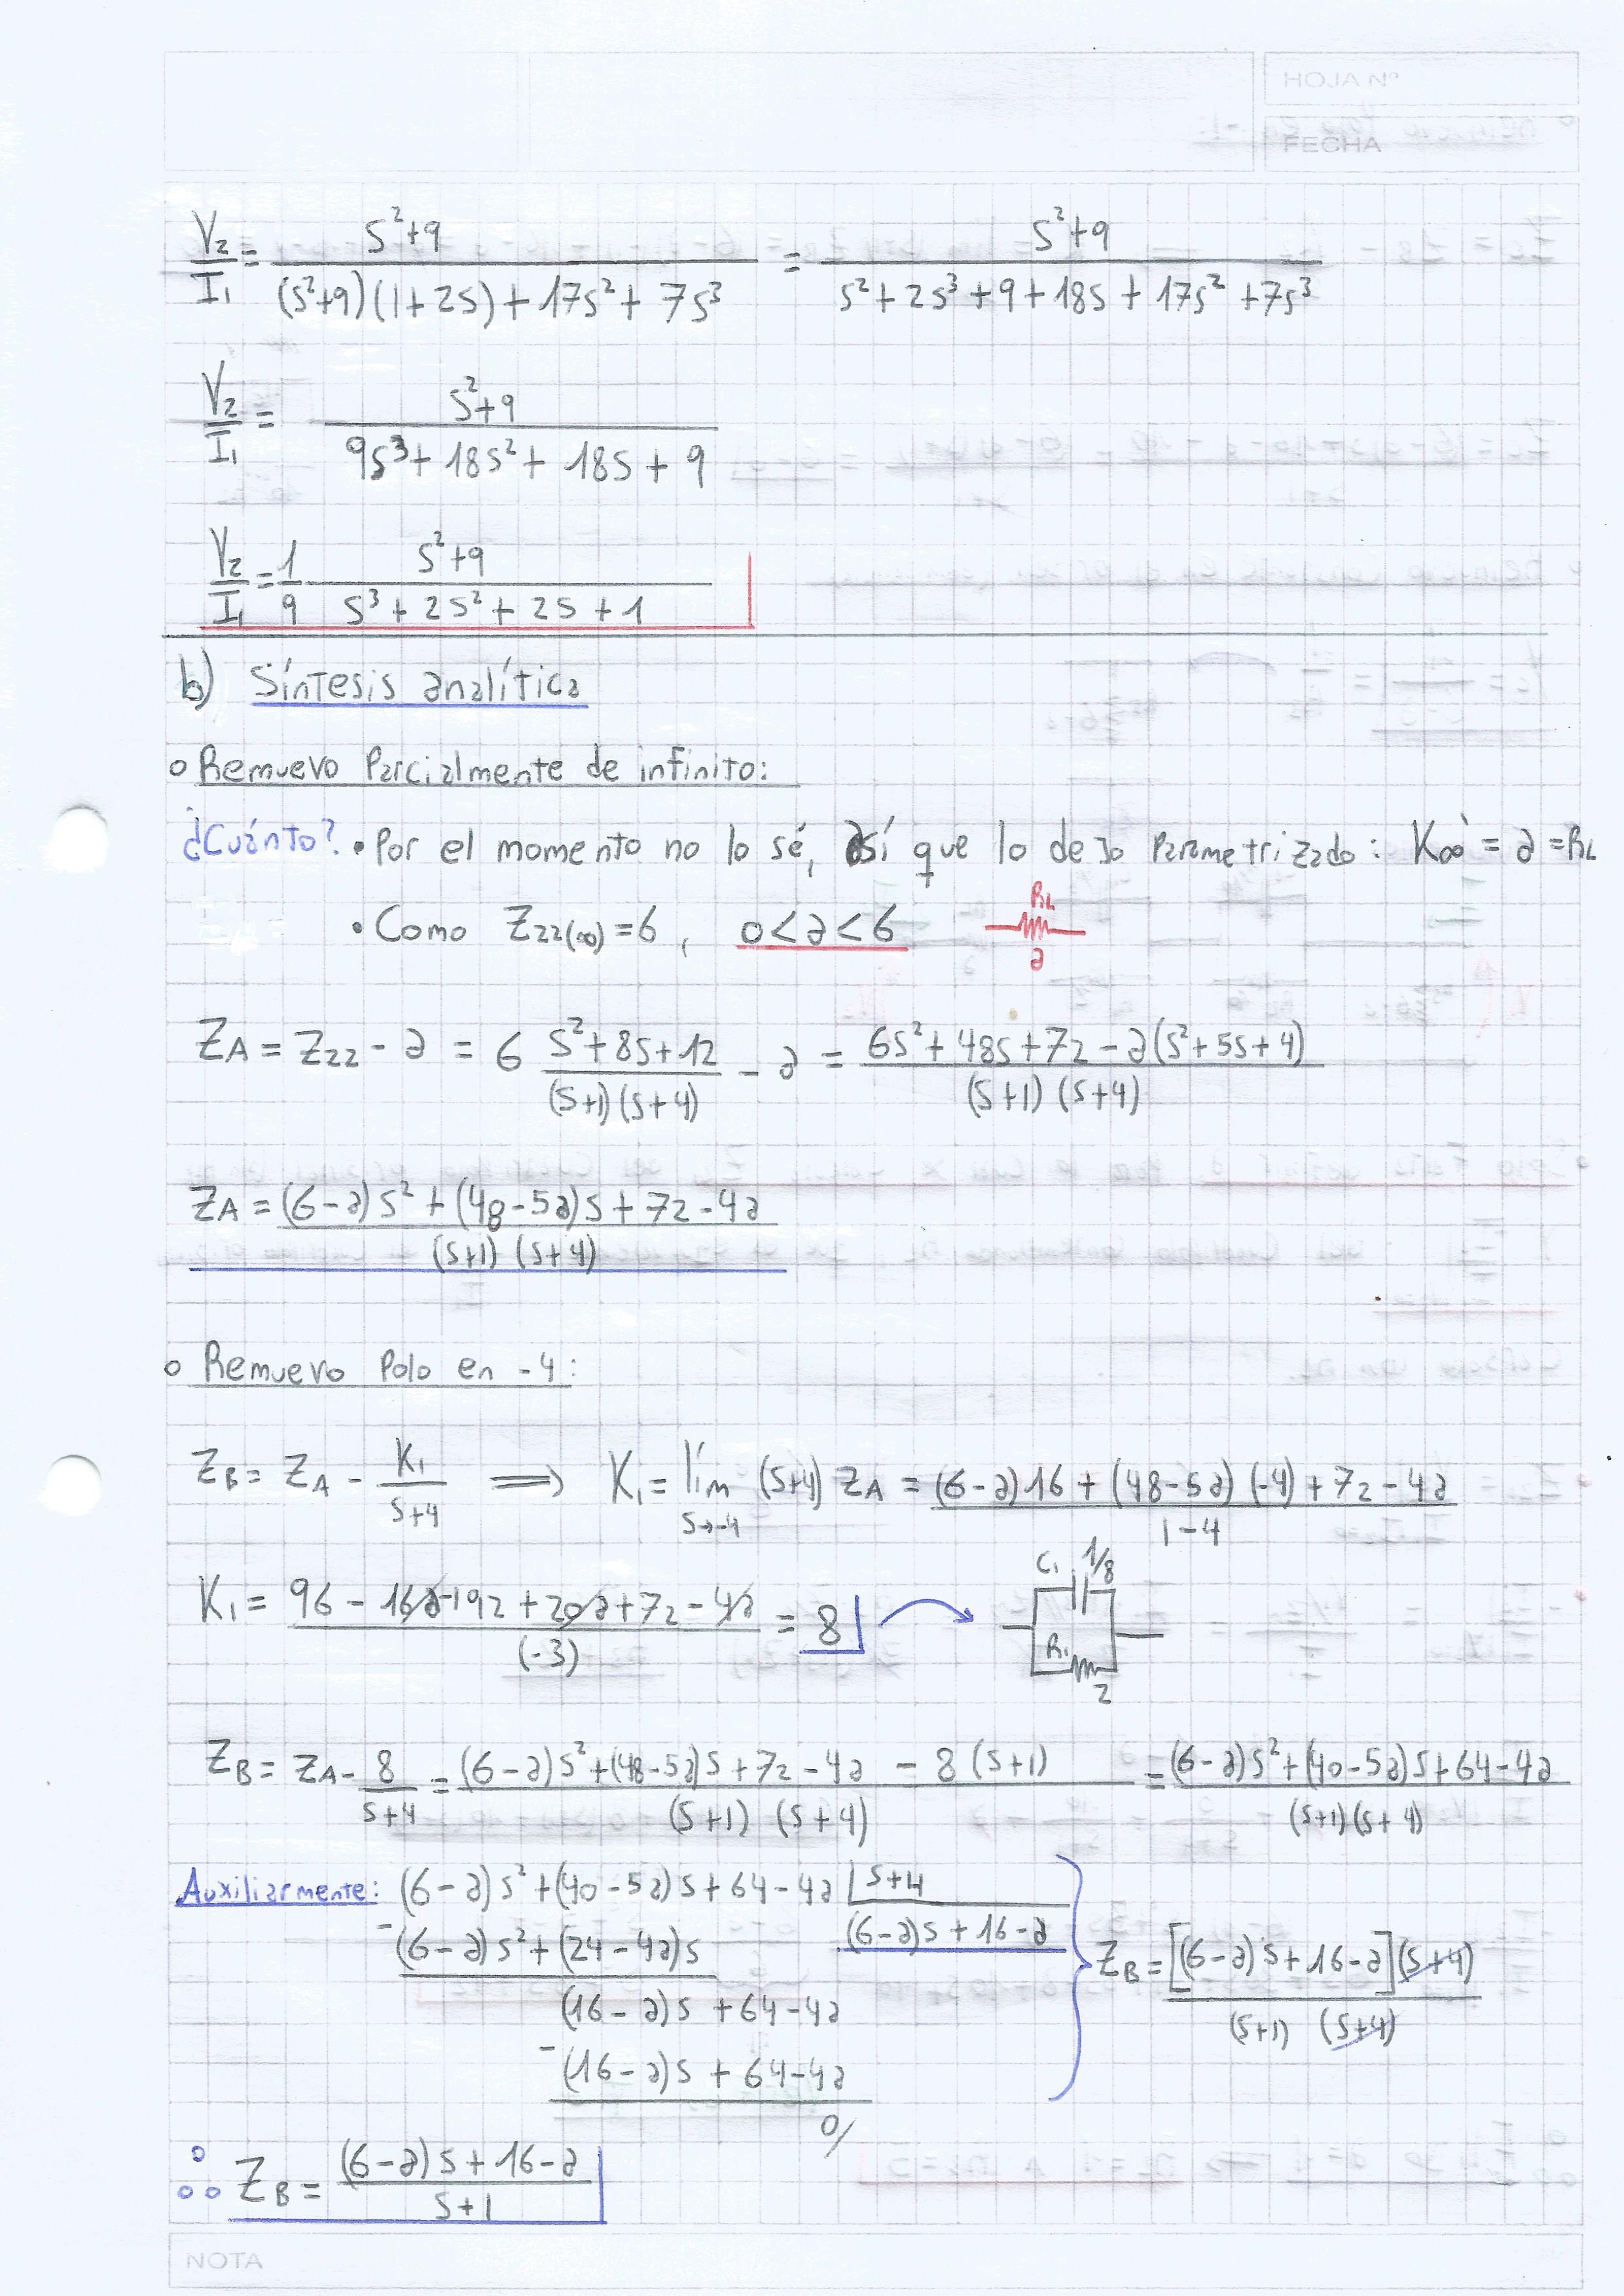 HOJA Nº
FECHA
V2/I1 = (s²+9)/((s²+9)(1+2s)+17s²+7s³) = (s²+9)/(s²+2s³+9+18s+17s²+7s³)
V2/I1 = (s²+9)/(9s³+18s²+18s+9)
V2/I1 = 1/9 (s²+9)/(s³+2s²+2s+1)
b) Síntesis analítica
o Remuevo Parcialmente de infinito:
¿Cuánto? • Por el momento no lo sé, así que lo dejo Parametrizado: K∞' = a = RL
• Como Z22(∞) = 6, 0<a<6
RL
a
ZA = Z22 - a = 6 (s²+8s+12)/((s+1)(s+4)) - a = (6s²+48s+72-a(s²+5s+4))/((s+1)(s+4))
ZA = ((6-a)s²+(48-5a)s+72-4a)/((s+1)(s+4))
o Remuevo Polo en -4:
ZB = ZA - K1/(s+4) ⟹ K1 = lím s→-4 (s+4) ZA = ((6-a)16+(48-5a)(-4)+72-4a)/(1-4)
K1 = (96-16a-192+20a+72-4a)/(-3) = 8
C1 1/8
R1
2
ZB = ZA - 8/(s+4) = ((6-a)s²+(48-5a)s+72-4a - 8(s+1))/((s+1)(s+4)) = ((6-a)s²+(40-5a)s+64-4a)/((s+1)(s+4))
Auxiliarmente: (6-a)s²+(40-5a)s+64-4a | s+4
-(6-a)s²+(24-4a)s
(6-a)s+16-a
(16-a)s+64-4a
-(16-a)s+64-4a
0/
ZB = [(6-a)s+16-a](s+4)/((s+1)(s+4))
∴ ZB = ((6-a)s+16-a)/(s+1)
NOTA